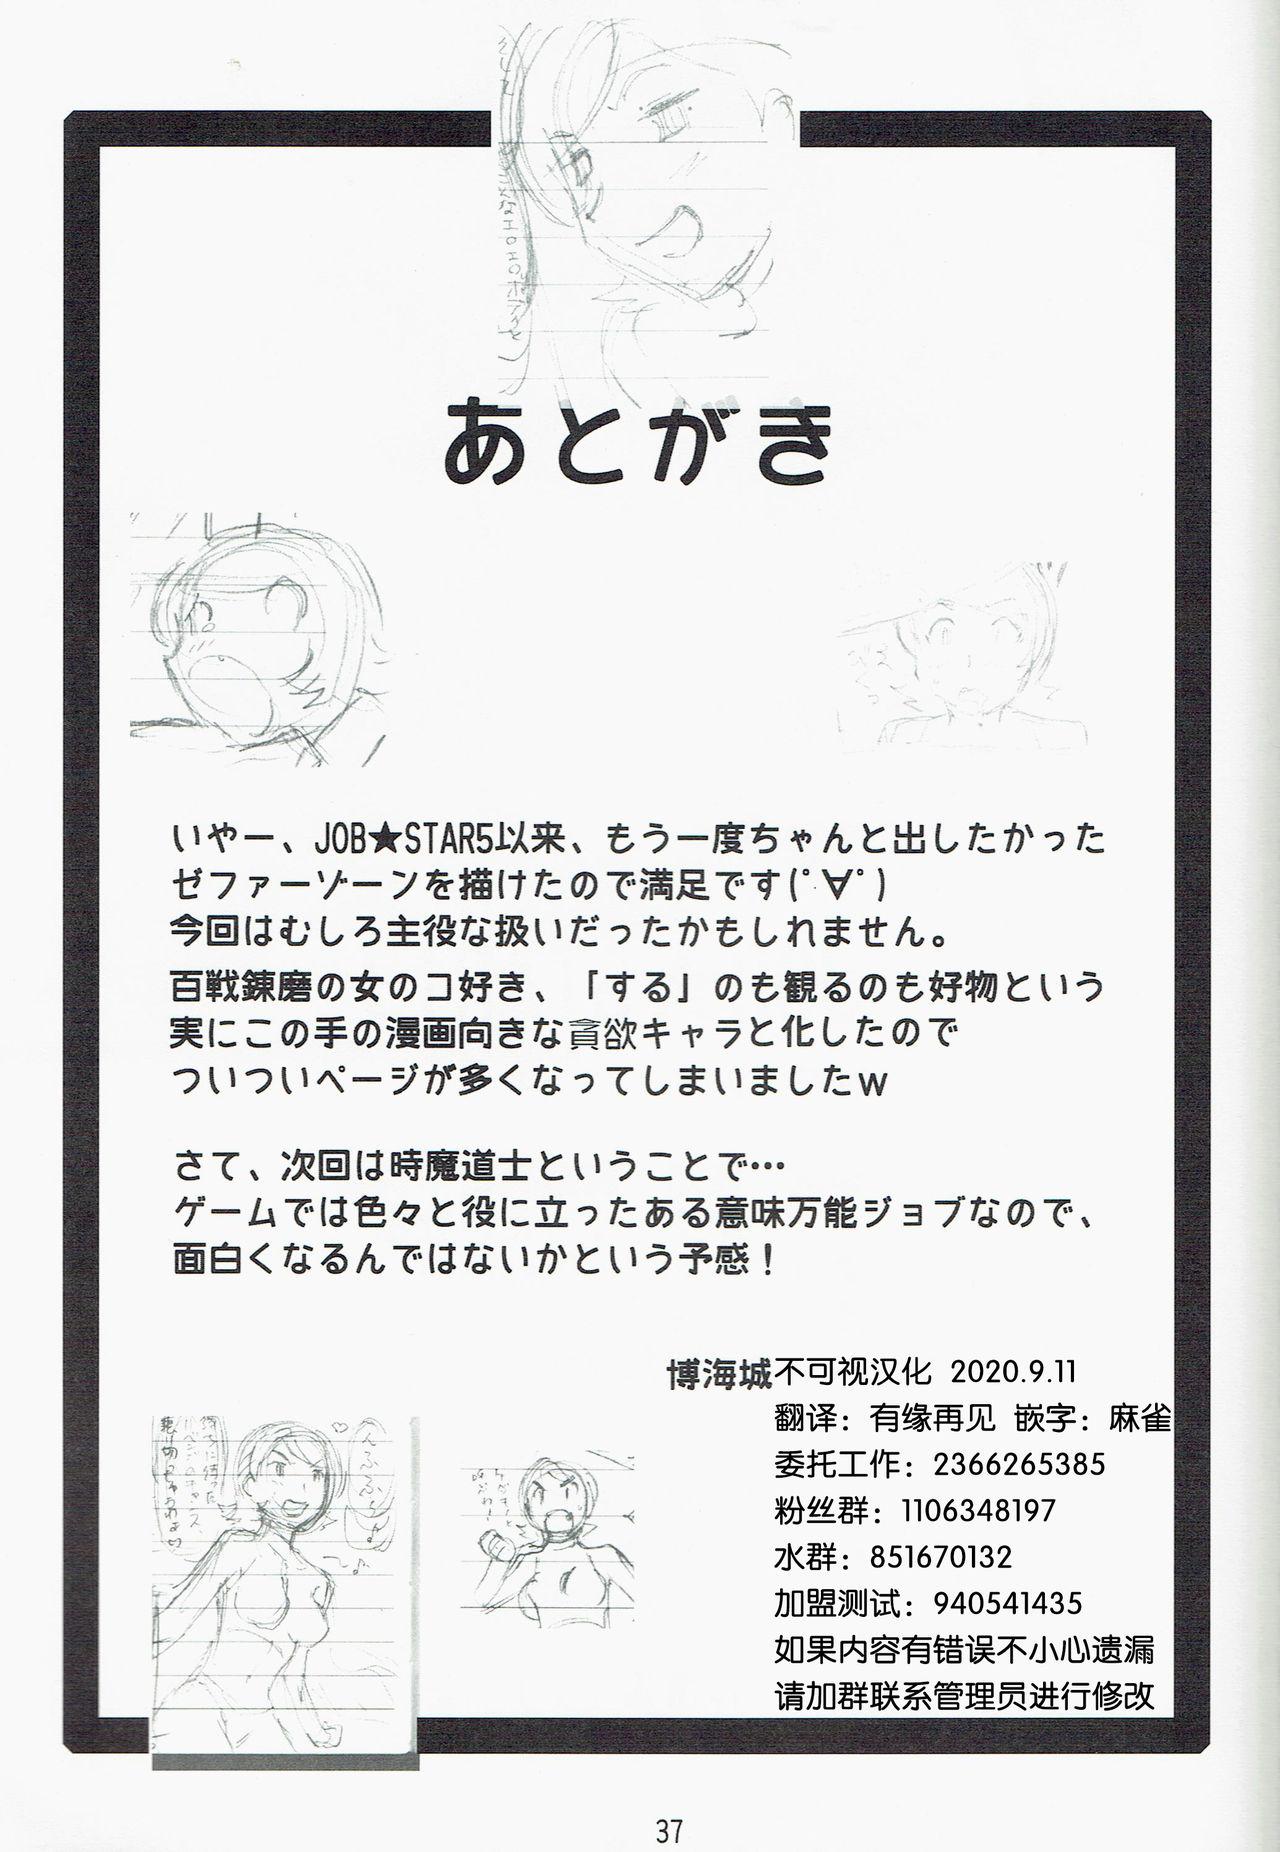 あとがき
いやー、JOB★STAR5以来、もう一度ちゃんと出したかった
ゼファーゾーンを描けたので満足です(ﾟ∀ﾟ)
今回はむしろ主役な扱いだったかもしれません。
百戦錬磨の女のコ好き、「する」のも観るのも好物という
実にこの手の漫画向きな貪欲キャラと化したので
ついついページが多くなってしまいましたｗ
さて、次回は時魔道士ということで…
ゲームでは色々と役に立ったある意味万能ジョブなので、
面白くなるんではないかという予感！
博海城
不可视汉化 2020.9.11
翻译：有缘再见 嵌字：麻雀
委托工作：2366265385
粉丝群：1106348197
水群：851670132
加盟测试：940541435
如果内容有错误不小心遗漏
请加群联系管理员进行修改
37